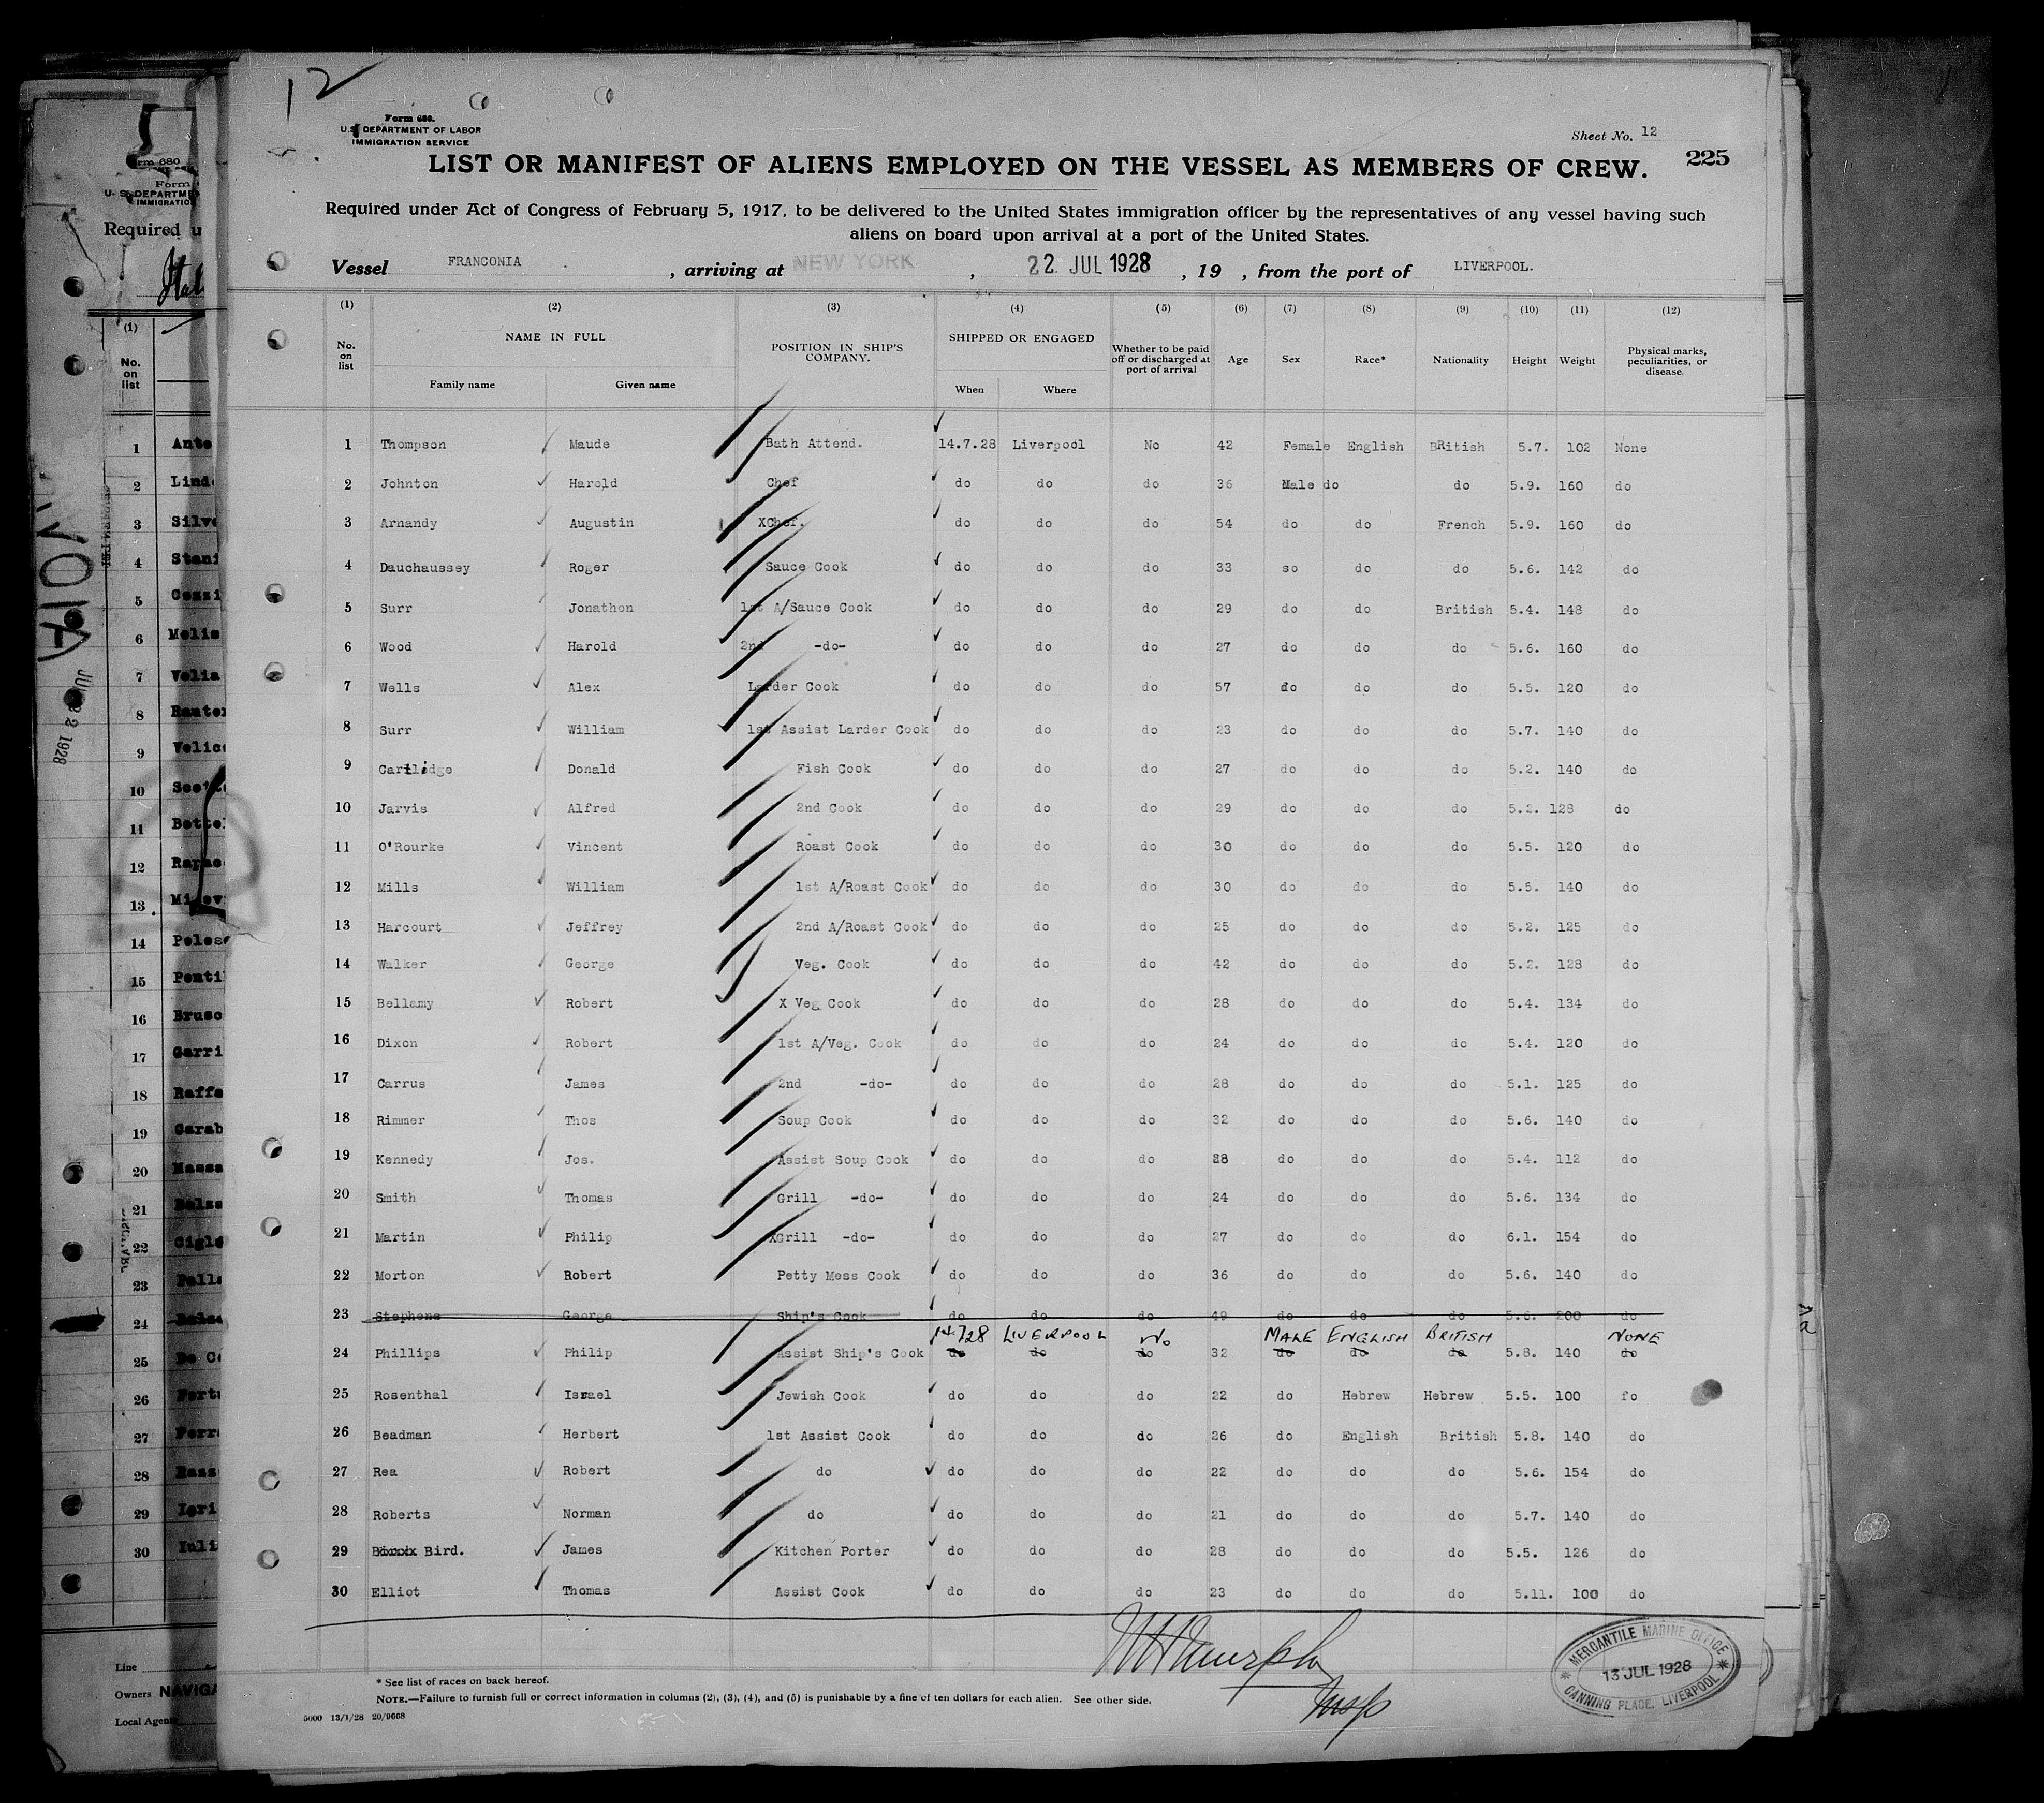 12
Form 680.
U.S. DEPARTMENT OF LABOR
IMMIGRATION SERVICE
Sheet No. 12
225
LIST OR MANIFEST OF ALIENS EMPLOYED ON THE VESSEL AS MEMBERS OF CREW.
Required under Act of Congress of February 5, 1917, to be delivered to the United States immigration officer by the representatives of any vessel having such
aliens on board upon arrival at a port of the United States.
Vessel FRANCONIA , arriving at NEW YORK , 22 JUL 1928 , 19 , from the port of LIVERPOOL.
(1) (2) (3) (4) (5) (6) (7) (8) (9) (10) (11) (12)
No. on list NAME IN FULL Family name Given name POSITION IN SHIP'S COMPANY. SHIPPED OR ENGAGED When Where Whether to be paid off or discharged at port of arrival Age Sex Race* Nationality Height Weight Physical marks, peculiarities, or disease.
1 Thompson Maude Bath Attend. 14.7.28 Liverpool No 42 Female English BRitish 5.7. 102 None
2 Johnton Harold Chef do do do 36 Male do do 5.9. 160 do
3 Arnandy Augustin XChef. do do do 54 do do French 5.9. 160 do
4 Dauchaussey Roger Sauce Cook do do do 33 so do do 5.6. 142 do
5 Surr Jonathon 1st A/Sauce Cook do do do 29 do do British 5.4. 148 do
6 Wood Harold 2nd -do- do do do 27 do do do 5.6. 160 do
7 Wells Alex Larder Cook do do do 57 do do do 5.5. 120 do
8 Surr William 1st Assist Larder Cook do do do 23 do do do 5.7. 140 do
9 Cartlidge Donald Fish Cook do do do 27 do do do 5.2. 140 do
10 Jarvis Alfred 2nd Cook do do do 29 do do do 5.2. 128 do
11 O'Rourke Vincent Roast Cook do do do 30 do do do 5.5. 120 do
12 Mills William 1st A/Roast Cook do do do 30 do do do 5.5. 140 do
13 Harcourt Jeffrey 2nd A/Roast Cook do do do 25 do do do 5.2. 125 do
14 Walker George Veg. Cook do do do 42 do do do 5.2. 128 do
15 Bellamy Robert X Veg Cook do do do 28 do do do 5.4. 134 do
16 Dixon Robert 1st A/Veg. Cook do do do 24 do do do 5.4. 120 do
17 Carrus James 2nd -do- do do do 28 do do do 5.1. 125 do
18 Rimmer Thos Soup Cook do do do 32 do do do 5.6. 140 do
19 Kennedy Jos. Assist Soup Cook do do do 28 do do do 5.4. 112 do
20 Smith Thomas Grill -do- do do do 24 do do do 5.6. 134 do
21 Martin Philip XGrill -do- do do do 27 do do do 6.1. 154 do
22 Morton Robert Petty Mess Cook do do do 36 do do do 5.6. 140 do
23 Stephens George Ship's Cook do do do 49 do do do 5.6. 200 do
14.7.28 LIVERPOOL No MALE ENGLISH BRITISH NONE
24 Phillips Philip Assist Ship's Cook do do do 32 do do do 5.8. 140 do
25 Rosenthal Israel Jewish Cook do do do 22 do Hebrew Hebrew 5.5. 100 fo
26 Beadman Herbert 1st Assist Cook do do do 26 do English British 5.8. 140 do
27 Rea Robert do do do do 22 do do do 5.6. 154 do
28 Roberts Norman do do do do 21 do do do 5.7. 140 do
29 Bird. James Kitchen Porter do do do 28 do do do 5.5. 126 do
30 Elliot Thomas Assist Cook do do do 23 do do do 5.11. 100 do
Insp
MERCANTILE MARINE OFFICE
13 JUL 1928
CANNING PLACE, LIVERPOOL
* See list of races on back hereof.
NOTE.—Failure to furnish full or correct information in columns (2), (3), (4), and (5) is punishable by a fine of ten dollars for each alien. See other side.
5000 13/1/28 20/9668